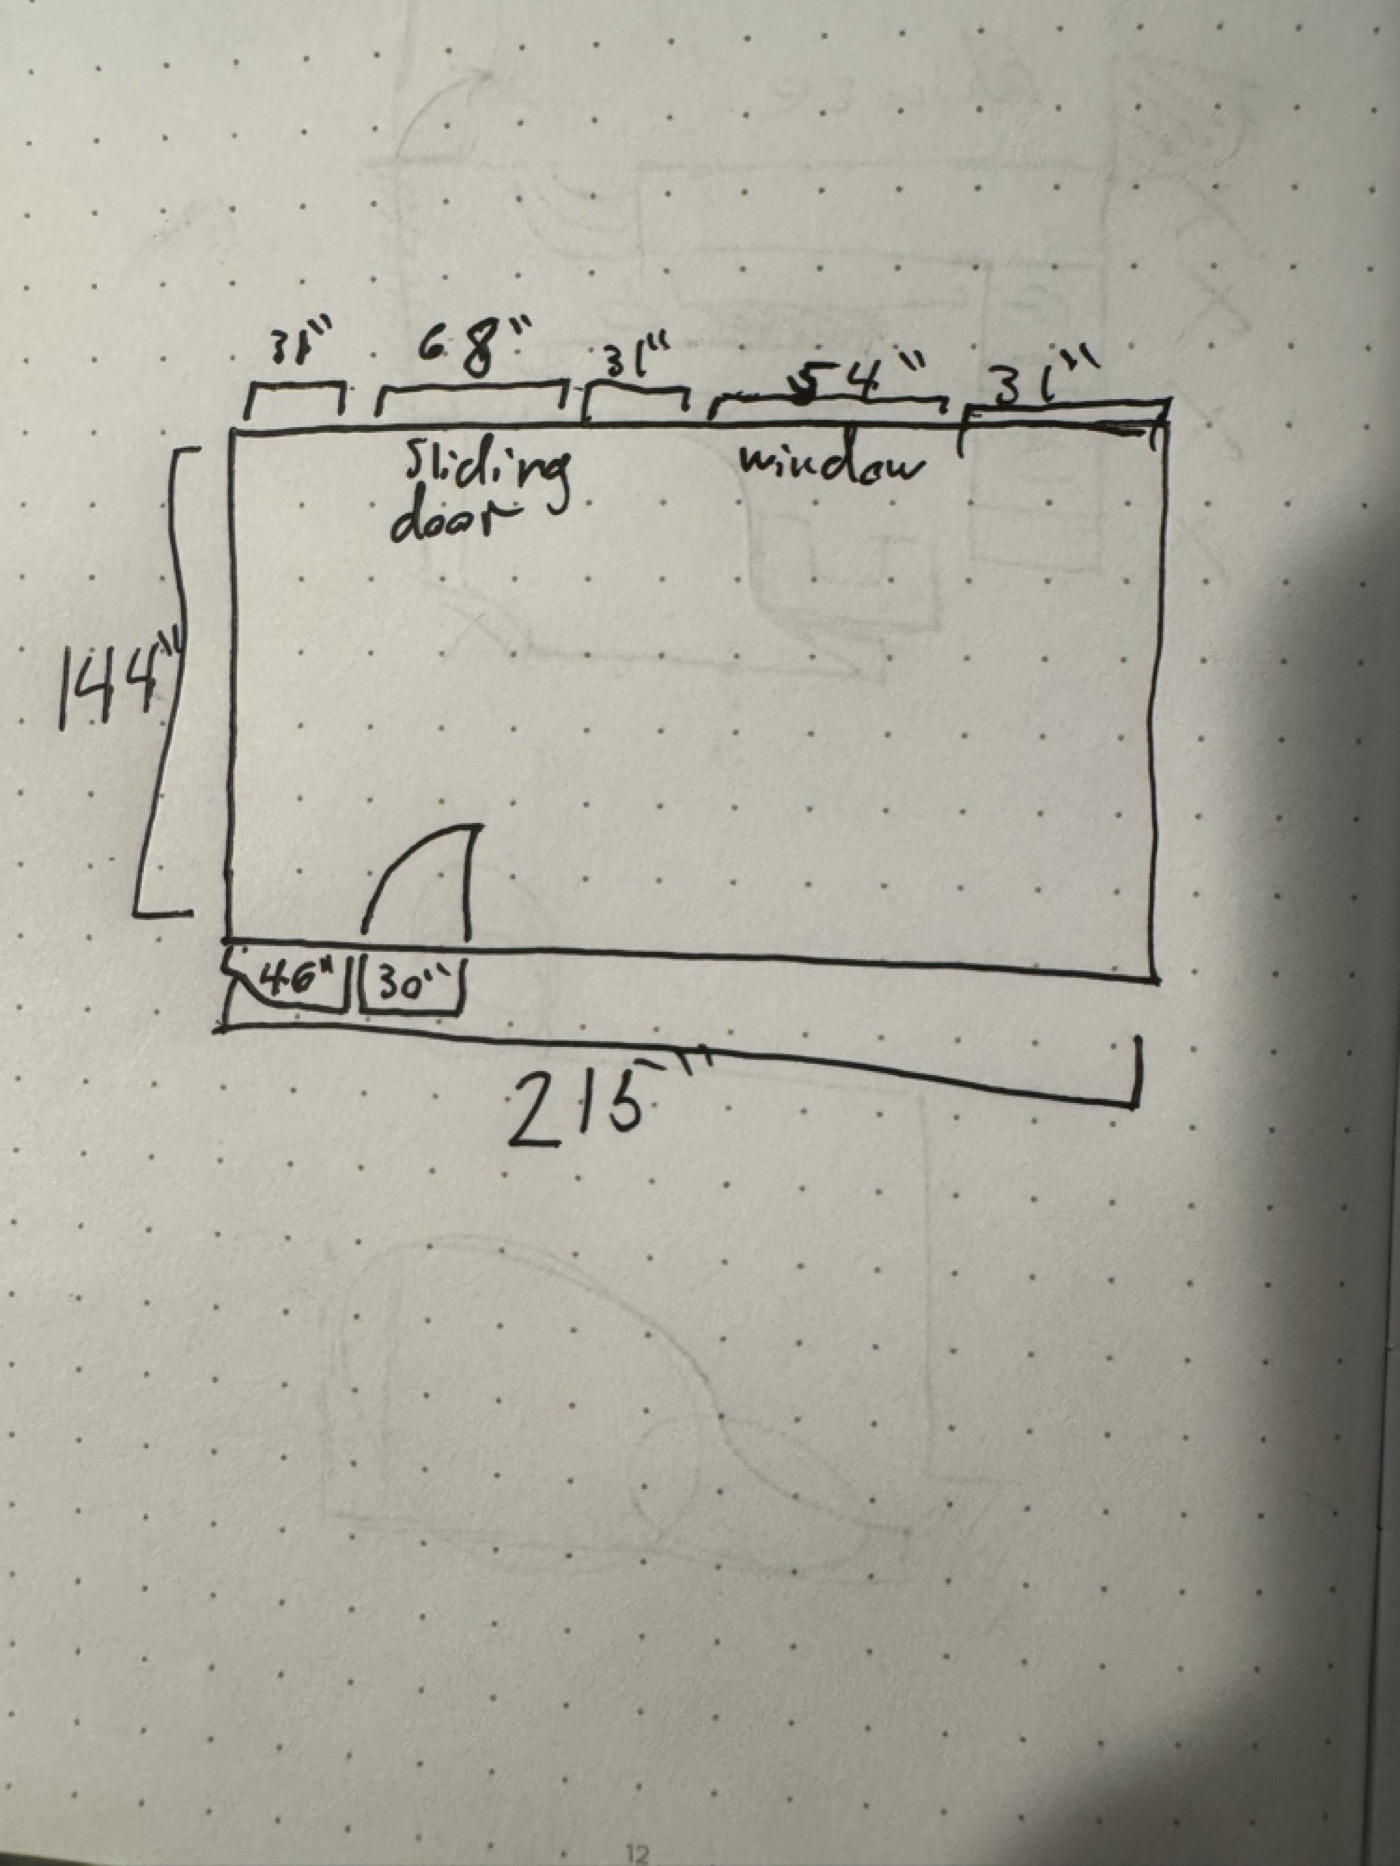 31" 68" 31" 54" 31"
sliding window
door
144"
46" 30"
215"
12